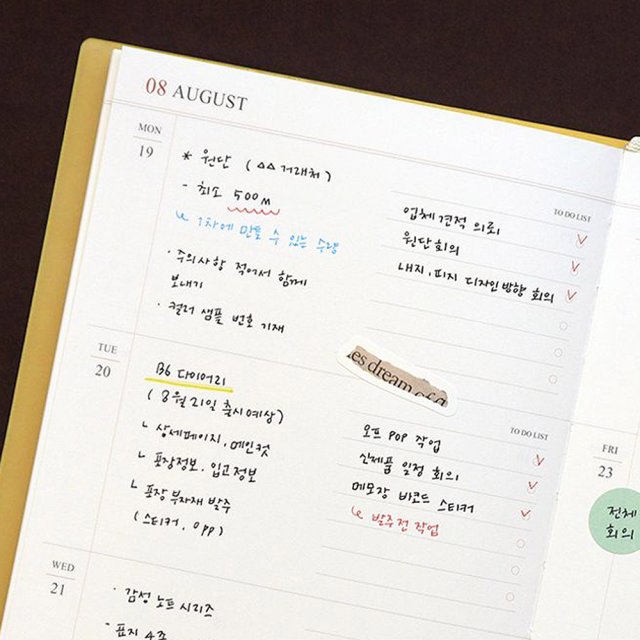 08 AUGUST
MON
19
* 원단 (△△ 거래처)
- 최소 500m
↳ 1차에 만들 수 있는 수량
· 주의사항 적어서 함께
보내기
· 컬러 샘플 번호 기재
TO DO LIST
업체 견적 의뢰
원단회의
내지, 피지 디자인방향 회의
TUE
20
B6 다이어리
(8월 21일 출시예상)
ㄴ 상세페이지, 메인컷
ㄴ 포장정보, 입고정보
ㄴ 포장 부자재 발주
(스티커, opp)
es dream of a
TO DO LIST
오프 POP 작업
신제품 일정 회의
메모장 바코드 스티커
↳ 발주전 작업
WED
21
· 감성 노트 시리즈
· 표지 4종
FRI
23
전체
회의